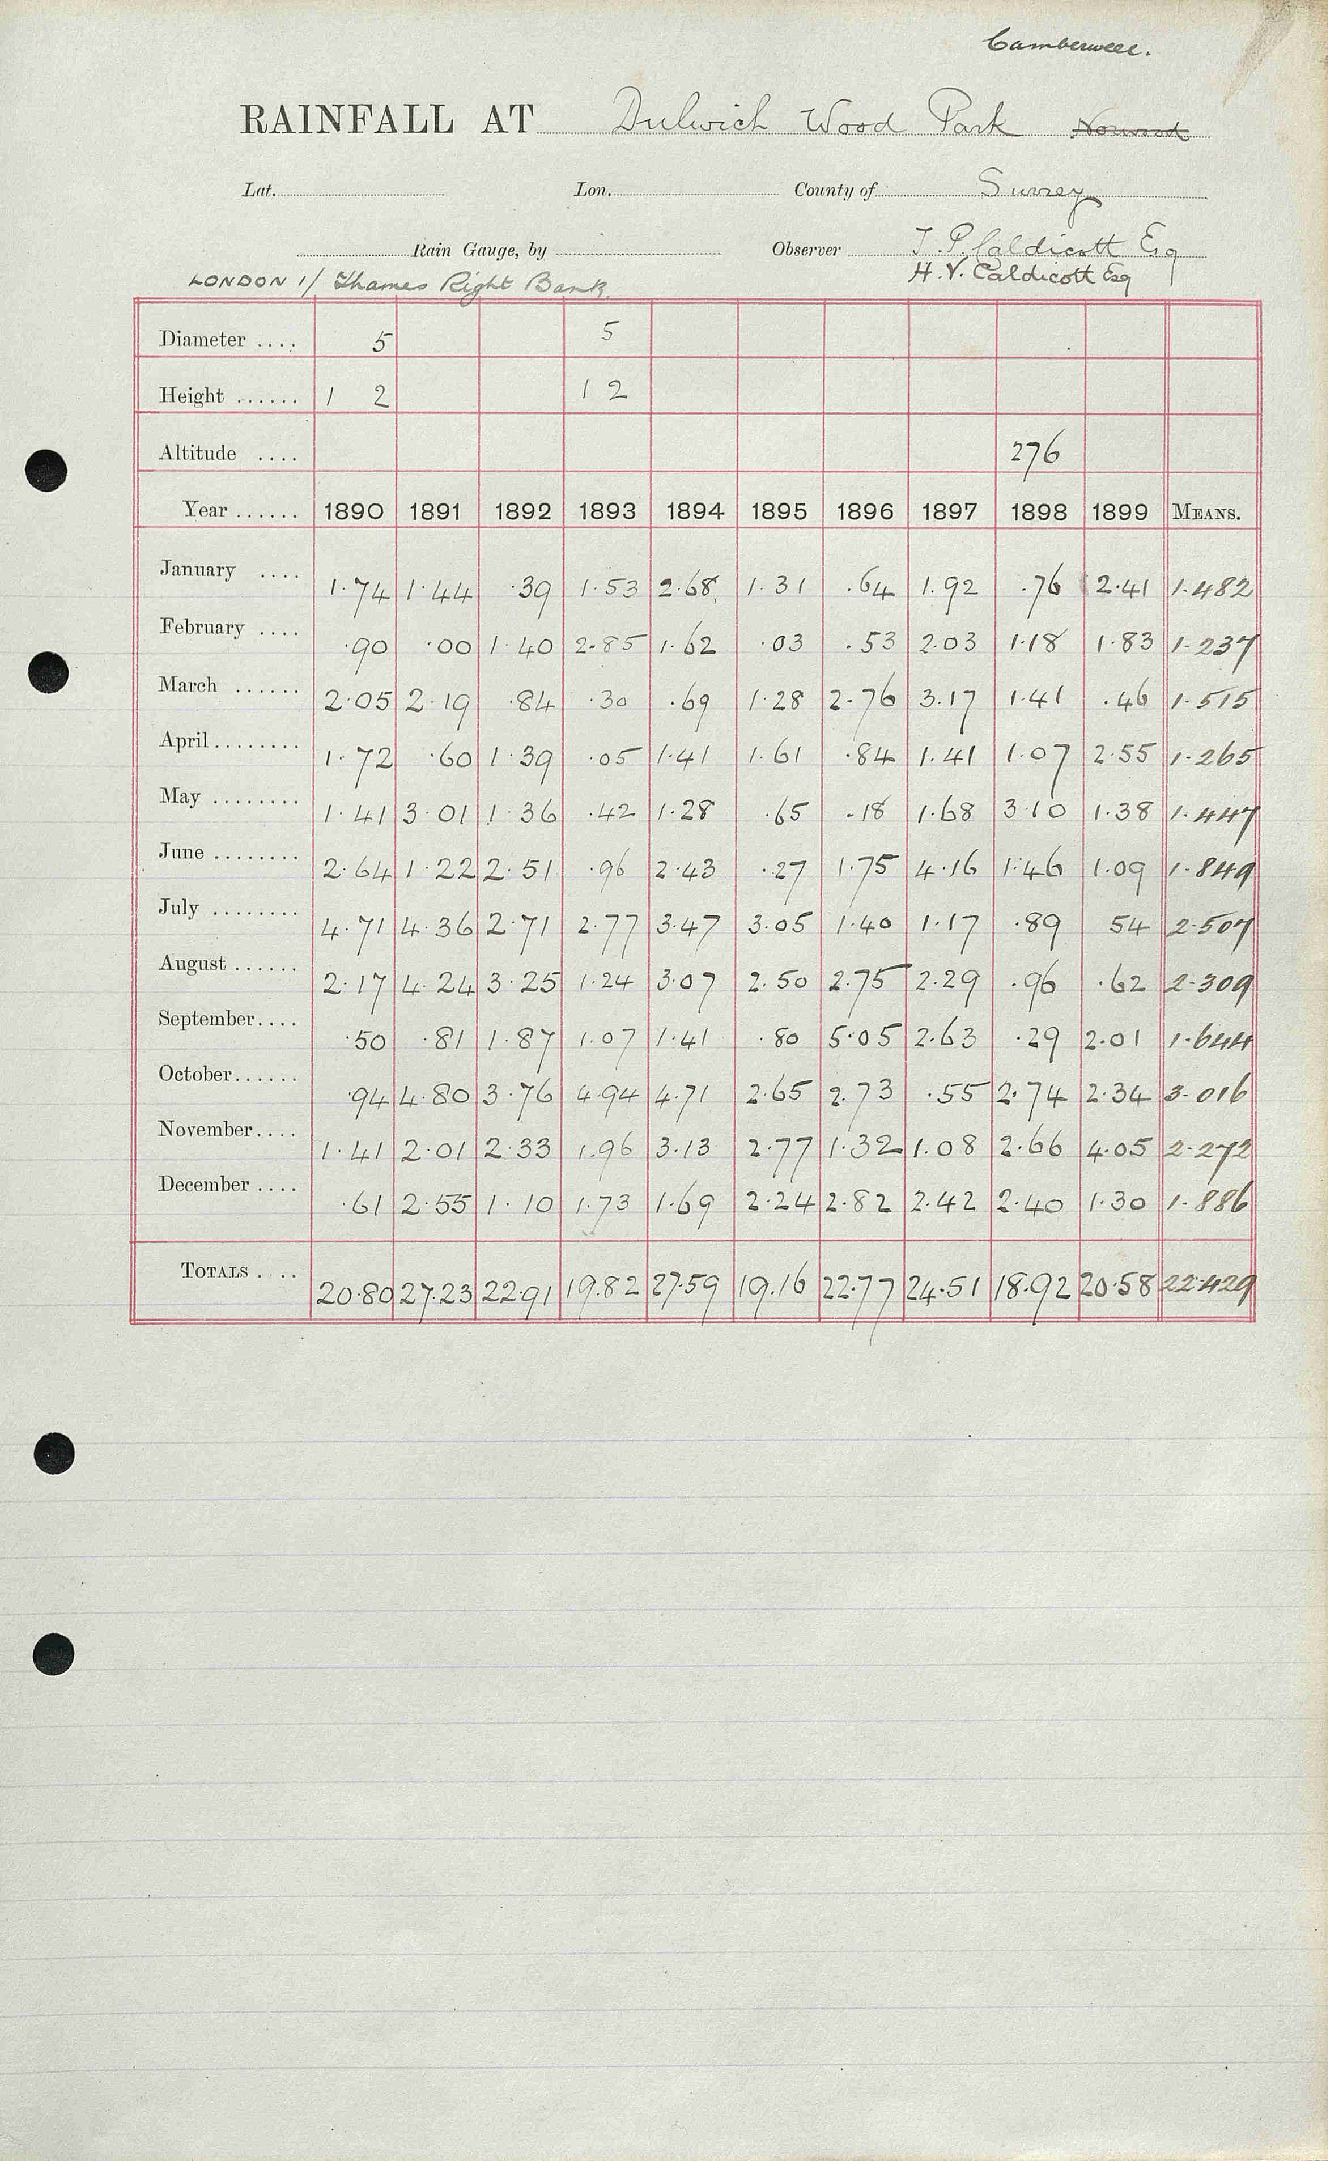 Camberwell.
RAINFALL AT Dulwich Wood Park Norwood
Lat. Lon. County of Surrey
Rain Gauge, by Observer T. P. Caldicott Esq
LONDON 1/ Thames Right Bank. H. V. Caldicott Esq
Diameter .... 5 5
Height ...... 1 2 1 2
Altitude .... 276
Year ...... 1890 1891 1892 1893 1894 1895 1896 1897 1898 1899 MEANS.
January .... 1.74 1.44 .39 1.53 2.68 1.31 .64 1.92 .76 2.41 1.482
February .... .90 .00 1.40 2.85 1.62 .03 .53 2.03 1.18 1.83 1.237
March ...... 2.05 2.19 .84 .30 .69 1.28 2.76 3.17 1.41 .46 1.515
April ........ 1.72 .60 1.39 .05 1.41 1.61 .84 1.41 1.07 2.55 1.265
May ........ 1.41 3.01 1.36 .42 1.28 .65 .18 1.68 3.10 1.38 1.447
June ........ 2.64 1.22 2.51 .96 2.43 .27 1.75 4.16 1.46 1.09 1.849
July ........ 4.71 4.36 2.71 2.77 3.47 3.05 1.40 1.17 .89 54 2.507
August ...... 2.17 4.24 3.25 1.24 3.07 2.50 2.75 2.29 .96 .62 2.309
September .... .50 .81 1.87 1.07 1.41 .80 5.05 2.63 .29 2.01 1.644
October ...... .94 4.80 3.76 4.94 4.71 2.65 2.73 .55 2.74 2.34 3.016
November .... 1.41 2.01 2.33 1.96 3.13 2.77 1.32 1.08 2.66 4.05 2.272
December .... .61 2.55 1.10 1.73 1.69 2.24 2.82 2.42 2.40 1.30 1.886
TOTALS .... 20.80 27.23 22.91 19.82 27.59 19.16 22.77 24.51 18.92 20.58 22.429